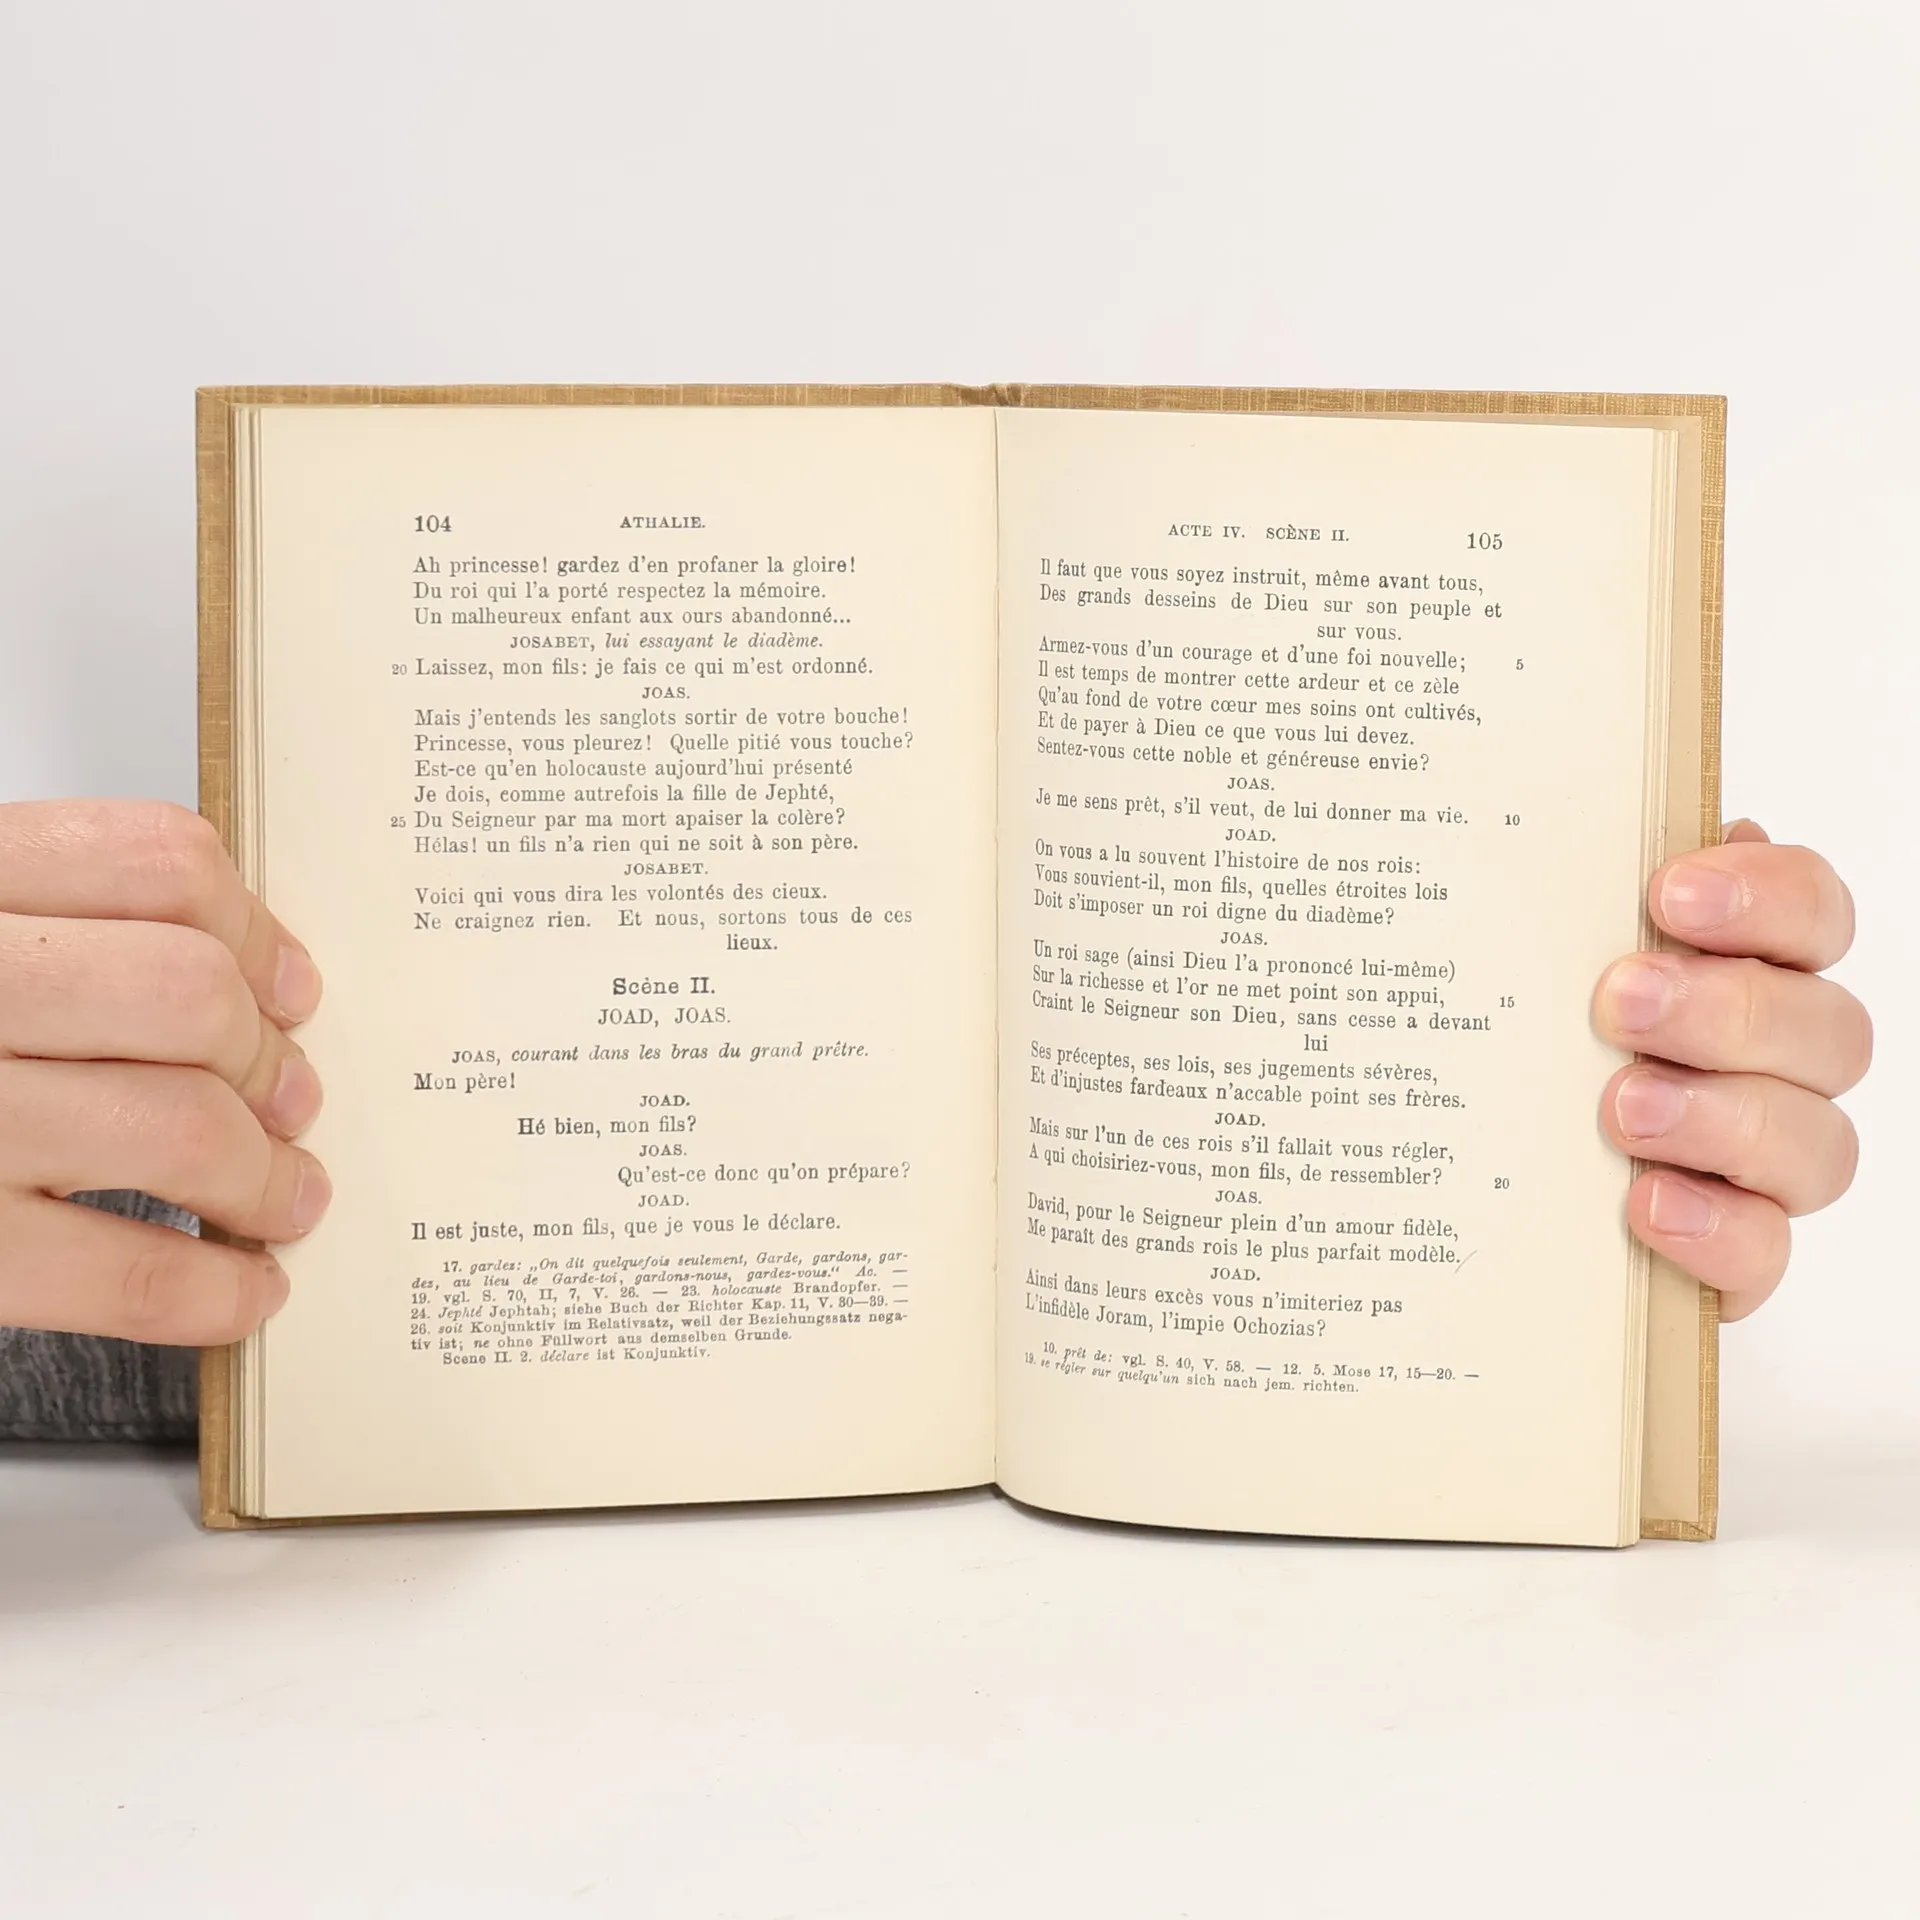 104 ATHALIE.
Ah princesse! gardez d'en profaner la gloire!
Du roi qui l'a porté respectez la mémoire.
Un malheureux enfant aux ours abandonné...
JOSABET, lui essayant le diadème.
20 Laissez, mon fils: je fais ce qui m'est ordonné.
JOAS.
Mais j'entends les sanglots sortir de votre bouche!
Princesse, vous pleurez! Quelle pitié vous touche?
Est-ce qu'en holocauste aujourd'hui présenté
Je dois, comme autrefois la fille de Jephté,
25 Du Seigneur par ma mort apaiser la colère?
Hélas! un fils n'a rien qui ne soit à son père.
JOSABET.
Voici qui vous dira les volontés des cieux.
Ne craignez rien. Et nous, sortons tous de ces
lieux.
Scène II.
JOAD, JOAS.
JOAS, courant dans les bras du grand prêtre.
Mon père!
JOAD.
Hé bien, mon fils?
JOAS.
Qu'est-ce donc qu'on prépare?
JOAD.
Il est juste, mon fils, que je vous le déclare.
17. gardez: „On dit quelquefois seulement, Garde, gardons, gar-
dez, au lieu de Garde-toi, gardons-nous, gardez-vous.“ Ac. —
19. vgl. S. 70, II, 7, V. 26. — 23. holocauste Brandopfer. —
24. Jephté Jephtah; siehe Buch der Richter Kap. 11, V. 30—39. —
26. soit Konjunktiv im Relativsatz, weil der Beziehungssatz nega-
tiv ist; ne ohne Füllwort aus demselben Grunde.
Scene II. 2. déclare ist Konjunktiv.
ACTE IV. SCÈNE II. 105
Il faut que vous soyez instruit, même avant tous,
Des grands desseins de Dieu sur son peuple et
sur vous.
Armez-vous d'un courage et d'une foi nouvelle; 5
Il est temps de montrer cette ardeur et ce zèle
Qu'au fond de votre cœur mes soins ont cultivés,
Et de payer à Dieu ce que vous lui devez.
Sentez-vous cette noble et généreuse envie?
JOAS.
Je me sens prêt, s'il veut, de lui donner ma vie. 10
JOAD.
On vous a lu souvent l'histoire de nos rois:
Vous souvient-il, mon fils, quelles étroites lois
Doit s'imposer un roi digne du diadème?
JOAS.
Un roi sage (ainsi Dieu l'a prononcé lui-même)
Sur la richesse et l'or ne met point son appui, 15
Craint le Seigneur son Dieu, sans cesse a devant
lui
Ses préceptes, ses lois, ses jugements sévères,
Et d'injustes fardeaux n'accable point ses frères.
JOAD.
Mais sur l'un de ces rois s'il fallait vous régler,
A qui choisiriez-vous, mon fils, de ressembler? 20
JOAS.
David, pour le Seigneur plein d'un amour fidèle,
Me paraît des grands rois le plus parfait modèle.
JOAD.
Ainsi dans leurs excès vous n'imiteriez pas
L'infidèle Joram, l'impie Ochozias?
10. prêt de: vgl. S. 40, V. 58. — 12. 5. Mose 17, 15—20. —
19. se régler sur quelqu'un sich nach jem. richten.